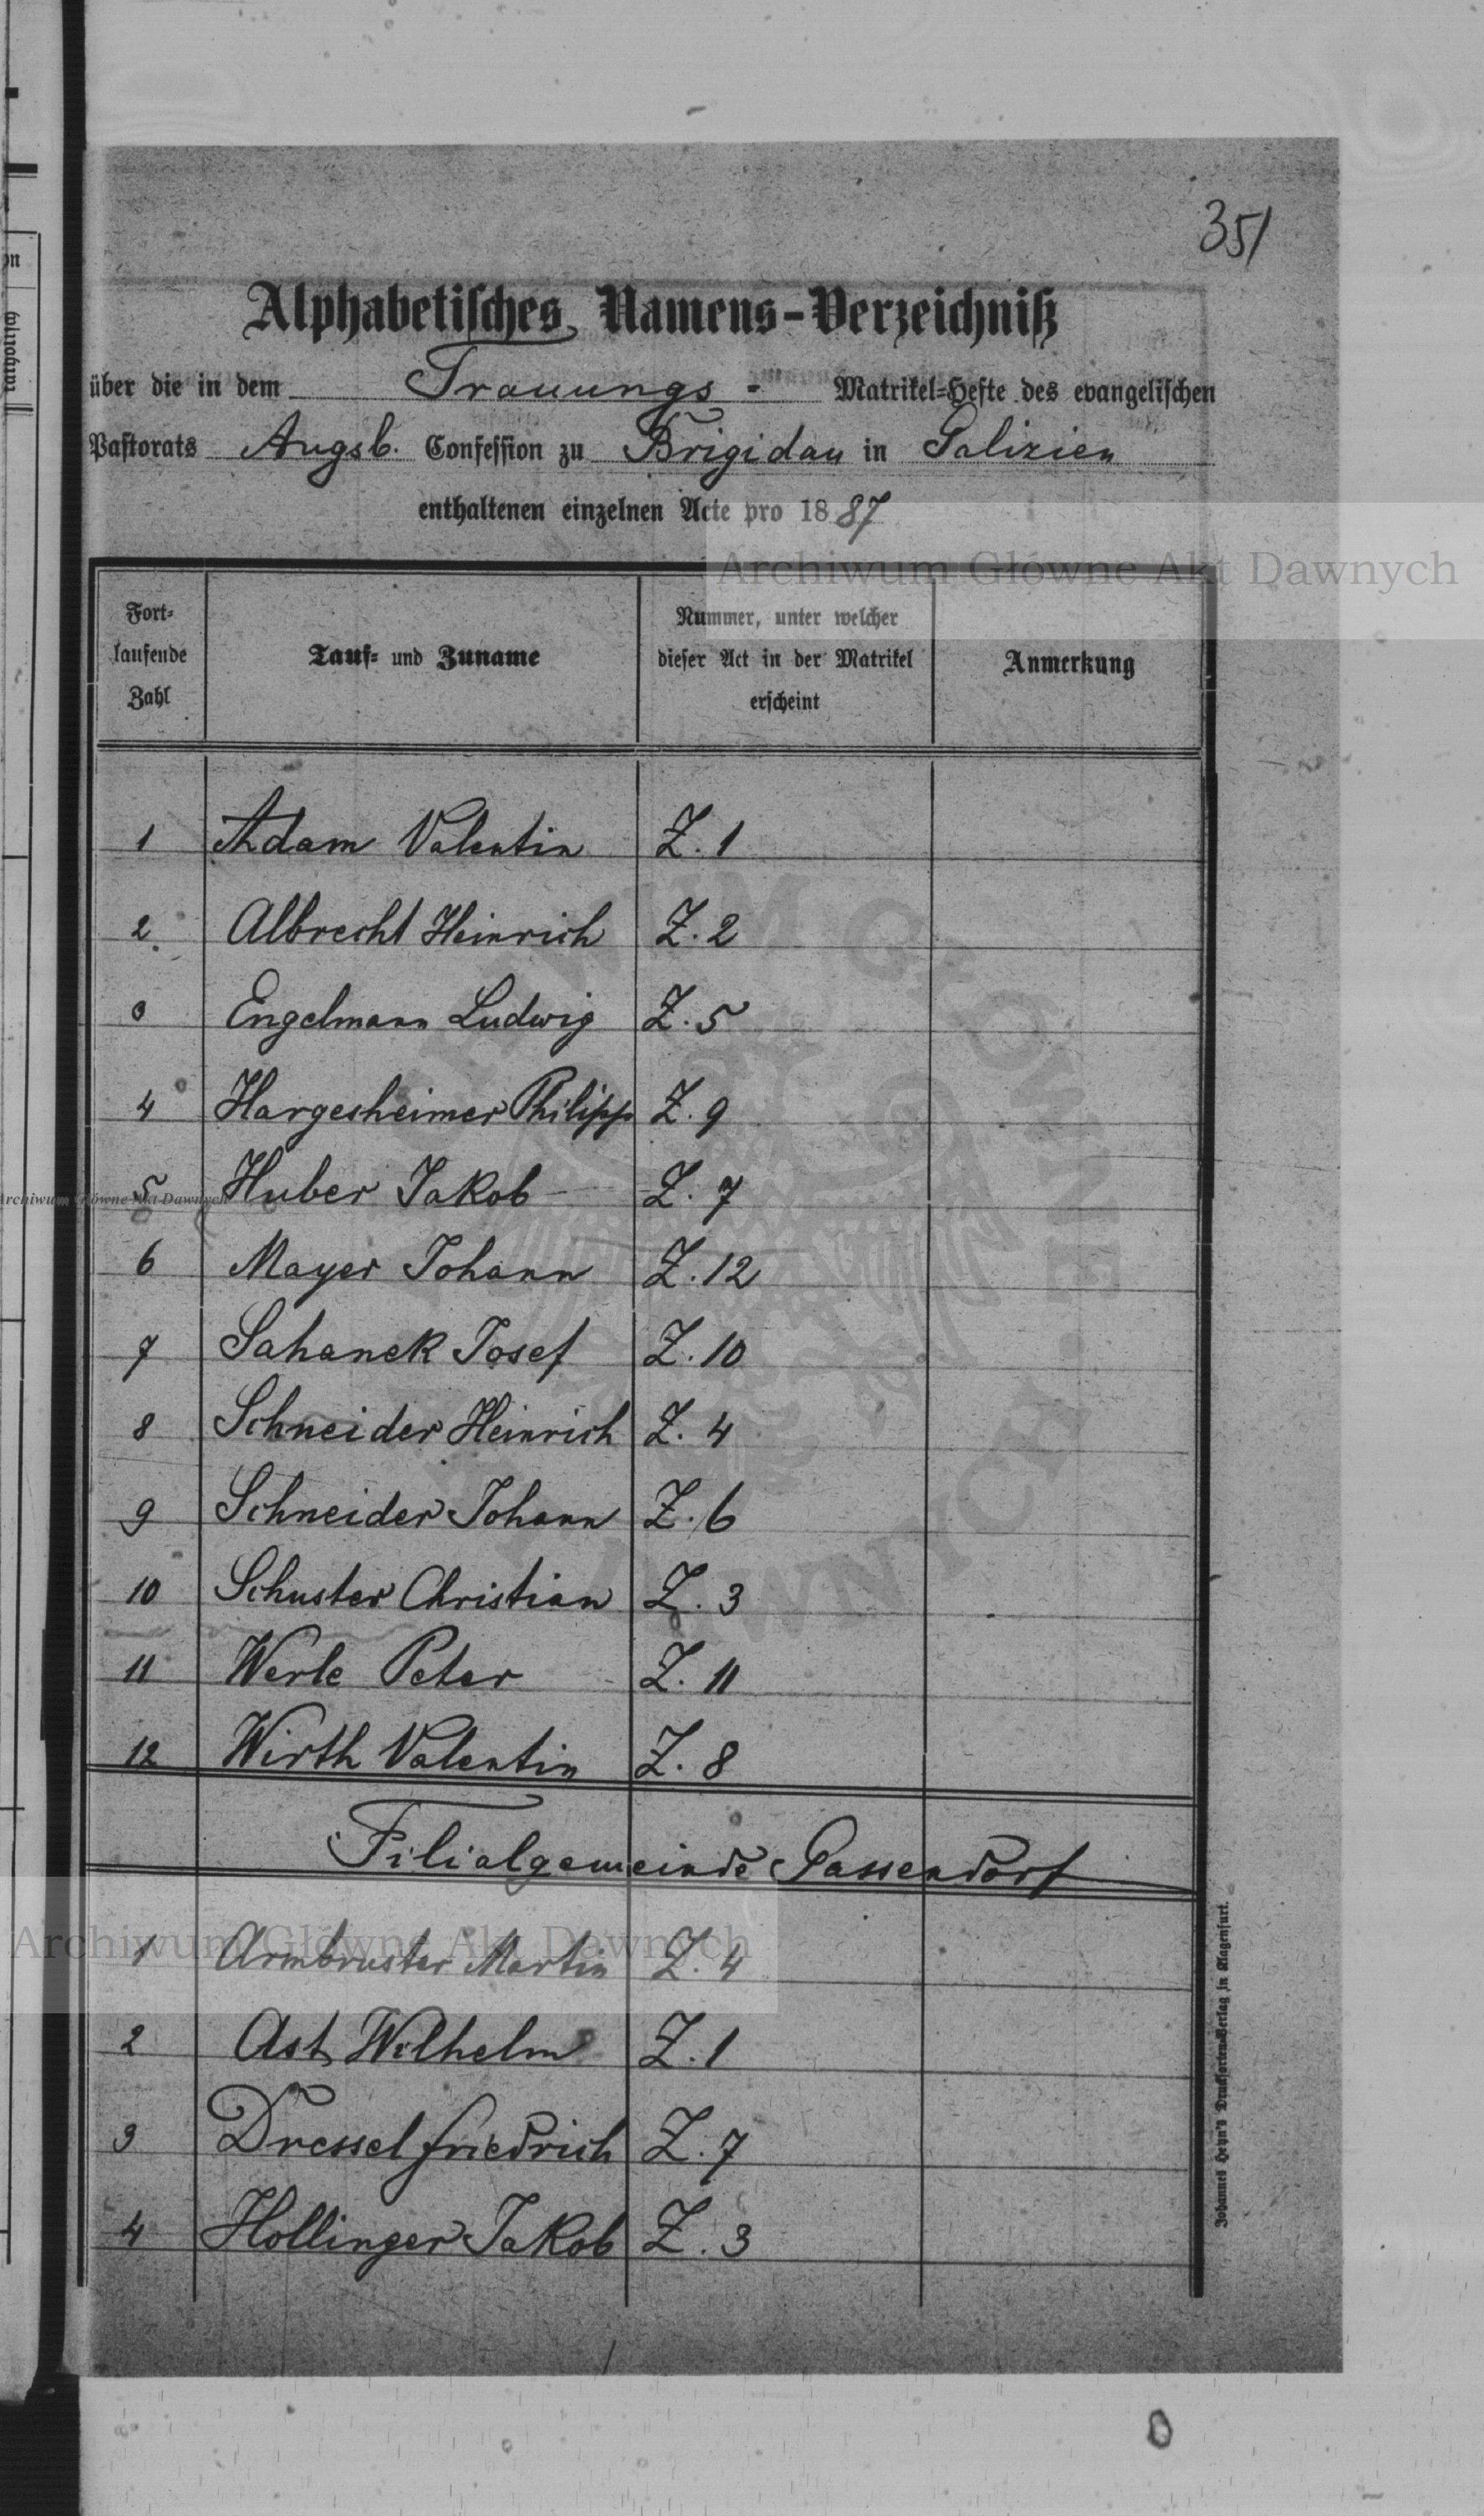 351
Alphabetisches Namens-Verzeichniß
über die in dem Trauungs - Matrikel-Hefte des evangelischen
Pastorats Augsb. Confession zu Brigidau in Galizien
enthaltenen einzelnen Acte pro 1887
Archiwum Główne Akt Dawnych
Fort-
laufende
Zahl
Tauf- und Zuname
Nummer, unter welcher
dieser Act in der Matrikel
erscheint
Anmerkung
1 Adam Valentin Z. 1
2. Albrecht Heinrich Z. 2
3 Engelmann Ludwig Z. 5
4 Hargesheimer Philipp Z. 9
5 Huber Jakob Z. 7
Archiwum Główne Akt Dawnych
6 Mayer Johann Z. 12
7 Sahanek Josef Z. 10
8 Schneider Heinrich Z. 4
9 Schneider Johann Z. 6
10 Schuster Christian Z. 3
11 Werle Peter Z. 11
12 Wirth Valentin Z. 8
Filialgemeinde Gassendorf
1 Armbruster Martin Z. 4
Archiwum Główne Akt Dawnych
2 Ast Wilhelm Z. 1
3 Dressel Friedrich Z. 7
4 Hollinger Jakob Z. 3
Johannes Heyn's Drucksorten-Verlag in Klagenfurt.